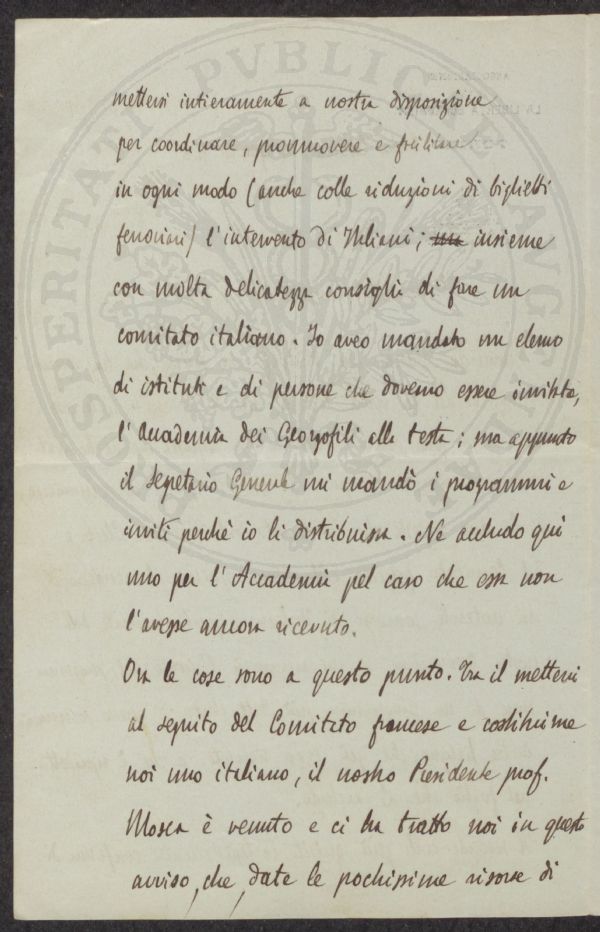 mettersi intieramente a nostra disposizione
per coordinare, promuovere e facilitare
in ogni modo (anche colle riduzioni di biglietti
ferroviari) l'intervento di Italiani; insieme
con molta delicatezza consiglia di fare un
comitato italiano. Io aveo mandato un elenco
di istituti e di persone che dovevano essere invitate,
l'Accademia dei Georgofili alla testa; ma appunto
il Segretario Generale mi mandò i programmi e
inviti perchè io li distribuissi. Ne accludo qui
uno per l'Accademia pel caso che essa non
l'avesse ancora ricevuto.
Ora le cose sono a questo punto. Tra il mettersi
al seguito del Comitato francese e costituirne
noi uno italiano, il nostro Presidente prof.
Mosca è venuto e ci ha tratto noi in questo
avviso, che, date le pochissime risorse di
PROSPERITATI PVBLICAE AVG